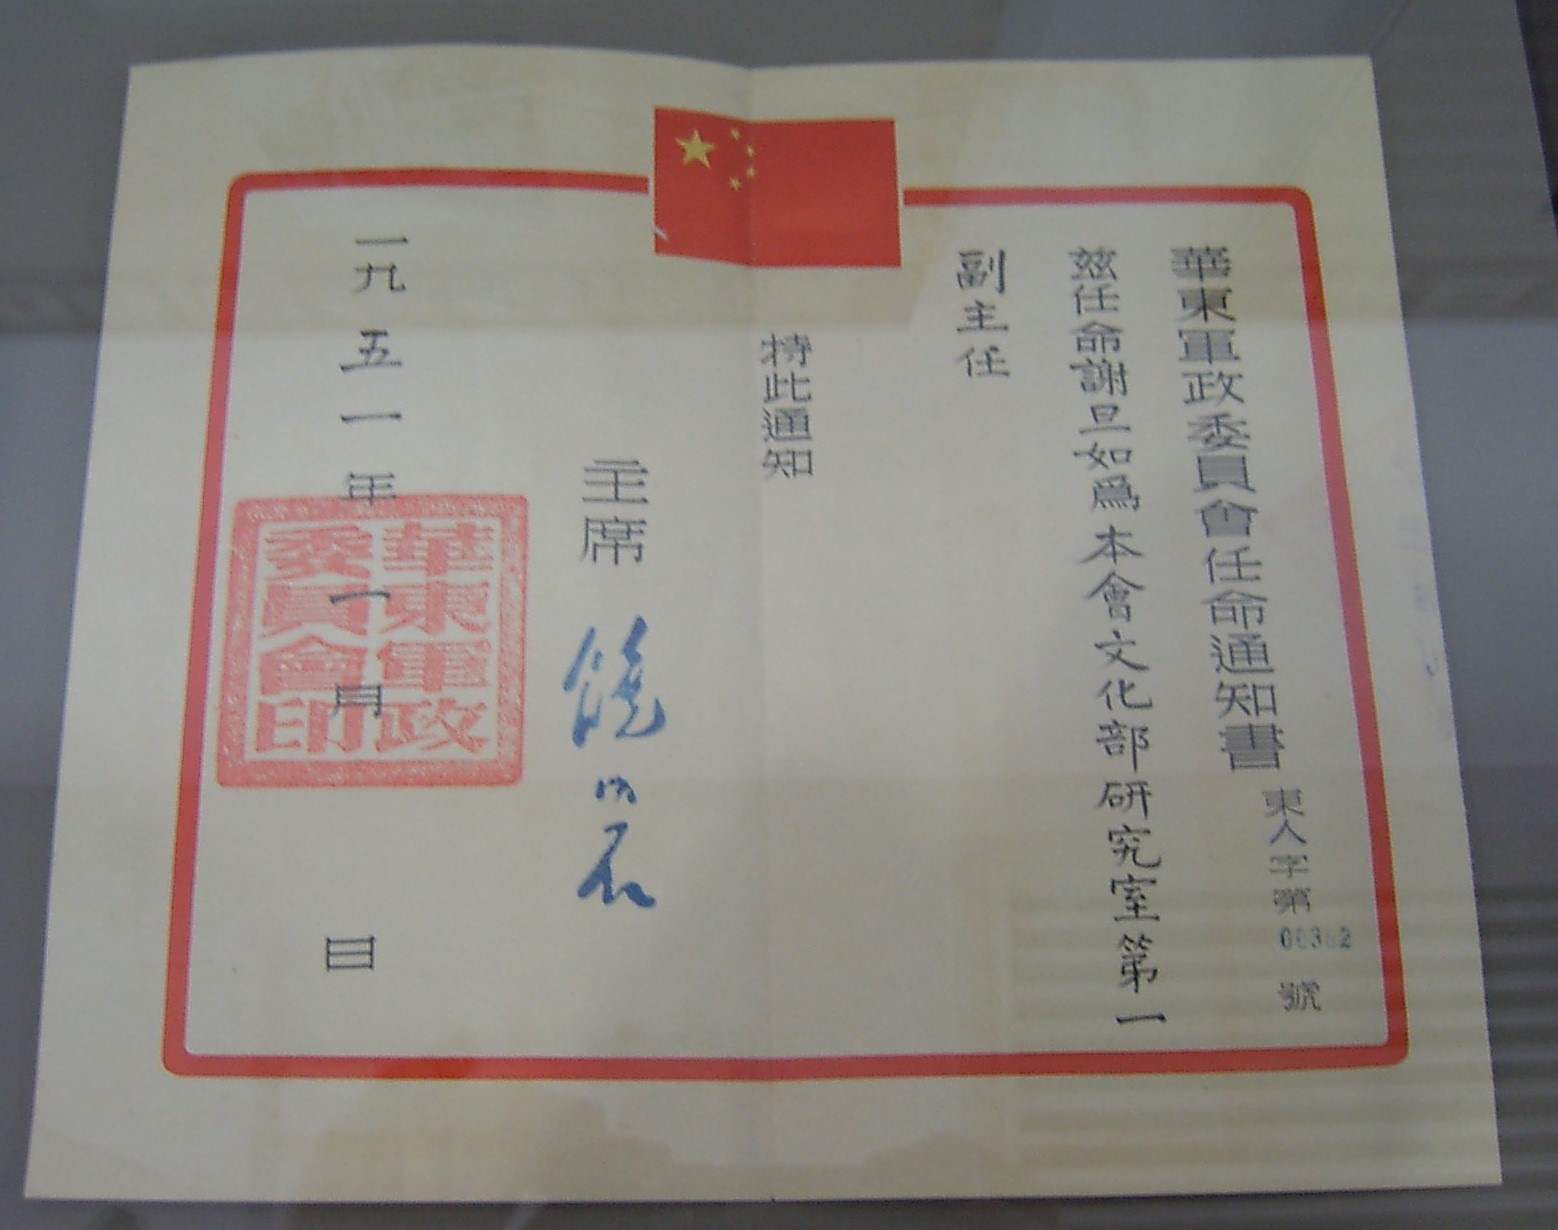 華東軍政委員會任命通知書
東人字第 號
兹任命謝旦如爲本會文化部研究室第一
副主任
特此通知
主席 饒漱石
一九五一年一月 日
華東軍政
委員會印